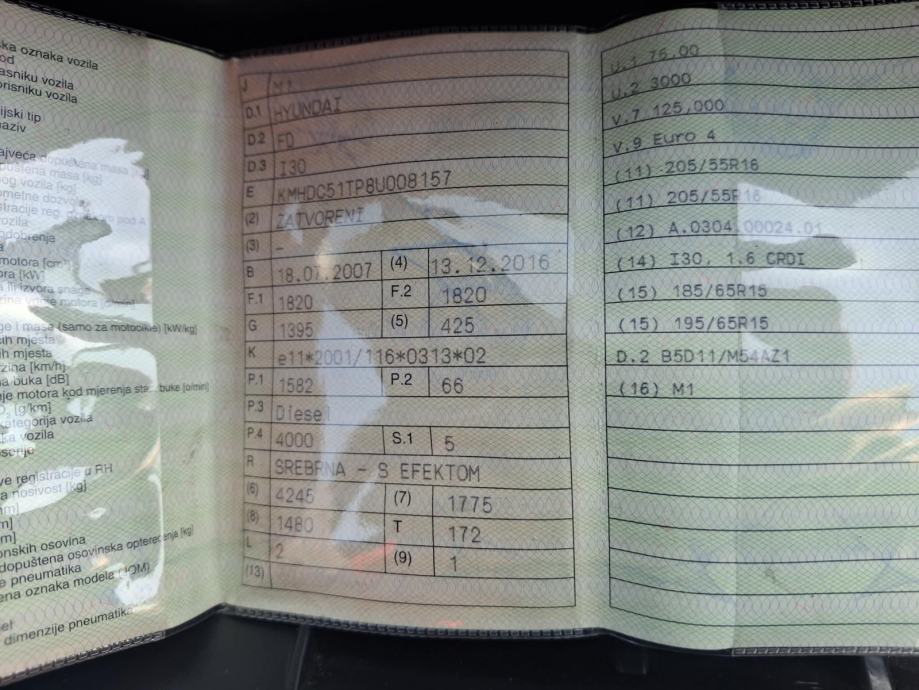 ska oznaka vozila
od
asniku vozila
orisniku vozila
ijski tip
naziv
ajveća dopuštena masa
puštena masa [kg]
nog vozila [kg]
vozila
odobrenja
a
motora [cm
ora [kW]
ili izvora snage
ge i mase (samo za motocikle) [kW/kg]
ih mjesta
ih mjesta
zina [km/h]
a buka [dB]
je motora kod mjerenja buke [o/min]
[g/km]
kategorija vozila
ka vozila
ve registracije u RH
a nosivost [kg]
m]
m]
m]
onskih osovina
dopuštena osovinska opterećenja [kg]
e pneumatika
ena oznaka modela (JOM)
el
dimenzije pneumatika
J M1
D.1 HYUNDAI
D.2 FD
D.3 I30
E KMHDC51TP8U008157
(2) ZATVORENI
(3) –
B 18.07.2007 (4) 13.12.2016
F.1 1820 F.2 1820
G 1395 (5) 425
K e11*2001/116*0313*02
P.1 1582 P.2 66
P.3 Diesel
P.4 4000 S.1 5
R SREBRNA – S EFEKTOM
(6) 4245 (7) 1775
(8) 1480 T 172
L 2 (9) 1
(13)
U.1 75,00
U.2 3000
V.7 125,000
V.9 Euro 4
(11) 205/55R16
(11) 205/55R16
(12) A.0304.00024.01
(14) I30, 1.6 CRDI
(15) 185/65R15
(15) 195/65R15
D.2 B5D11/M54AZ1
(16) M1